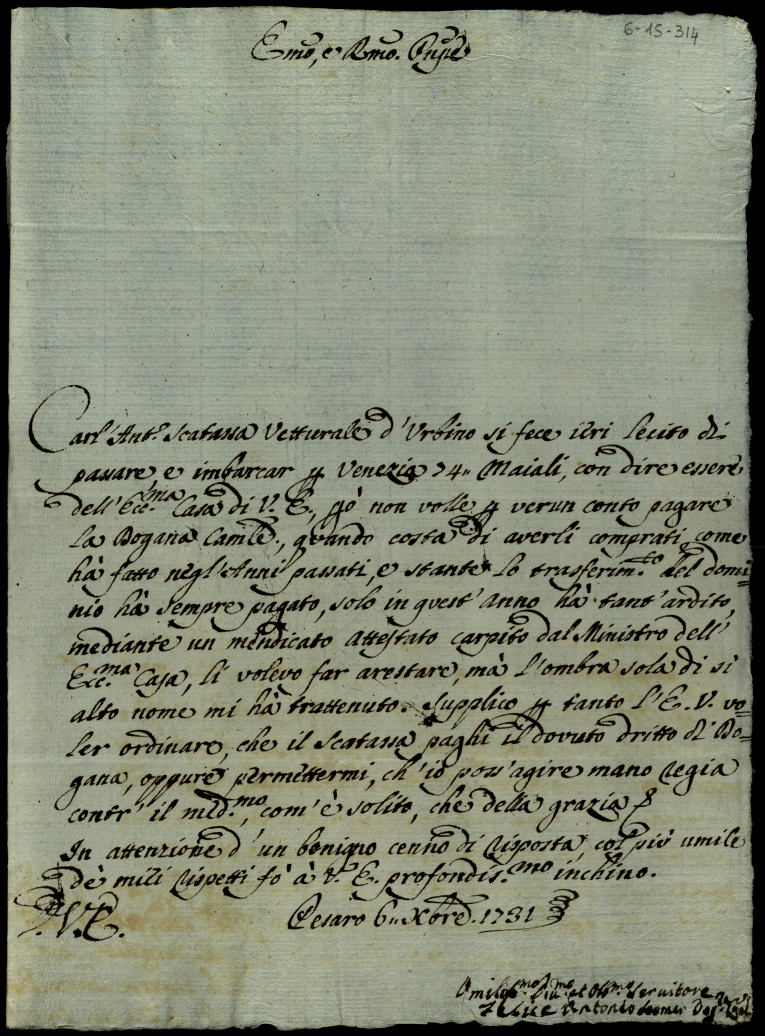 6-15-314
Emo, e Rmo. Pnpe
Carl'Ant.º Scatassa Vetturale d'Urbino si fece ieri lecito di
passare, e imbarcar p Venezia 74„ Maiali, con dire essere
dell'Ecc.ma Casa di V. E., pò non volle p verun conto pagare
la Dogana Camle., quando costa di averli comprati, come
hà fatto negl'Anni passati, e stante lo trasferim.to del domi=
nio hà sempre pagato, solo in quest'anno hà tant'ardito,
mediante un mendicato Attestato carpito dal Ministro dell'
Ecc.ma Casa, li volevo far arestare, mà l'ombra sola di si
alto nome mi hà trattenuto. Supplico p tanto l'E. V. vo=
ler ordinare, che il Scatassa paghi il dovuto dritto di Do=
gana, oppure permettermi, ch'io poss'agire mano regia
contr'il med.mo, com'è solito, che della grazia
In attenzione d'un benigno cenno di risposta, col più umile
de miei rispetti fò à V. E. profondis.mo inchino.
D. V. E. Pesaro 6„ Xbre. 1731
Umilis.mo et Obb.mo Servitore
Felice Antonio